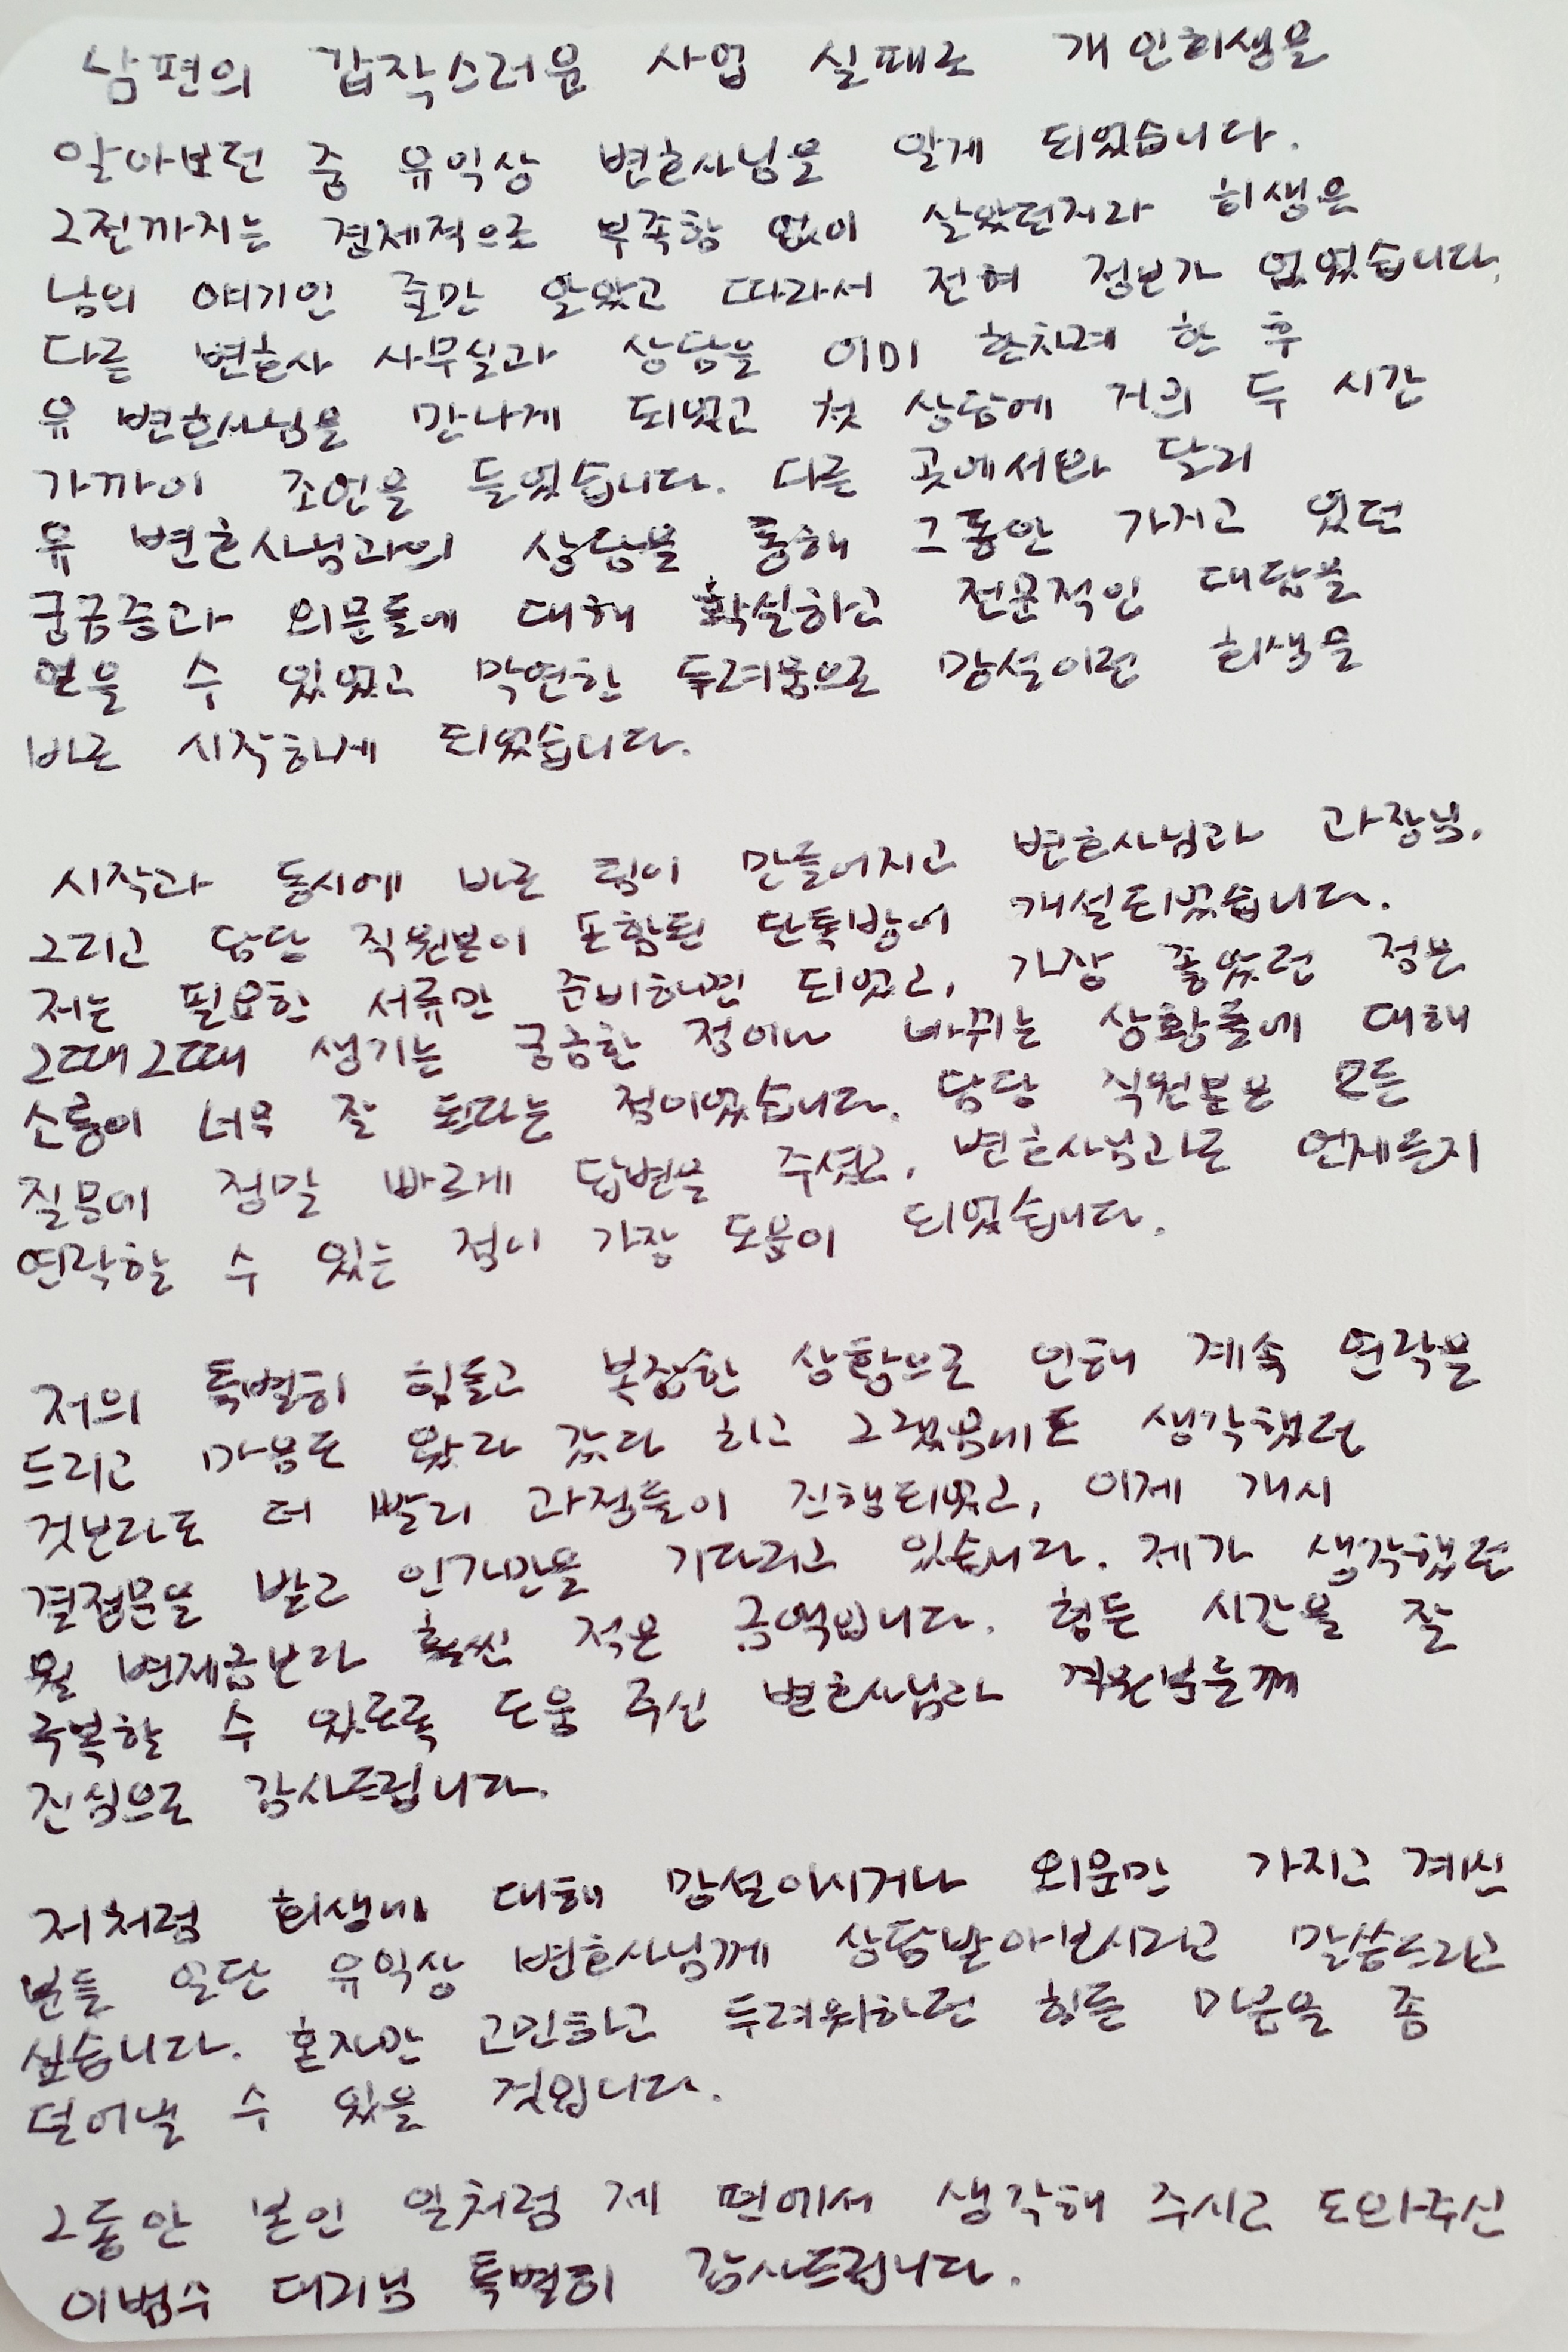 남편의 갑작스러운 사업 실패로 개인회생을
알아보던 중 유익상 변호사님을 알게 되었습니다.
그전까지는 경제적으로 부족함 없이 살았던지라 회생은
남의 얘기인 줄만 알았고 따라서 전혀 정보가 없었습니다.
다른 변호사 사무실과 상담을 이미 한차례 한 후
유 변호사님을 만나게 되었고 첫 상담에 거의 두 시간
가까이 조언을 들었습니다. 다른 곳에서와 달리
유 변호사님과의 상담을 통해 그동안 가지고 있던
궁금증과 의문들에 대해 확실하고 전문적인 대답을
얻을 수 있었고 막연한 두려움으로 망설이던 회생을
바로 시작하게 되었습니다.
시작과 동시에 바로 팀이 만들어지고 변호사님과 과장님,
그리고 담당 직원분이 포함된 단톡방이 개설되었습니다.
저는 필요한 서류만 준비하면 되었고, 가장 좋았던 점은
그때그때 생기는 궁금한 점이나 바뀌는 상황들에 대해
소통이 너무 잘 된다는 점이었습니다. 담당 직원분은 모든
질문에 정말 빠르게 답변을 주셨고, 변호사님과도 언제든지
연락할 수 있는 점이 가장 도움이 되었습니다.
저의 특별히 힘들고 복잡한 상황으로 인해 계속 연락을
드리고 마음도 왔다 갔다 하고 그랬음에도 생각했던
것보다도 더 빨리 과정들이 진행되었고, 이제 개시
결정문을 받고 인가만을 기다리고 있습니다. 제가 생각했던
월 변제금보다 훨씬 적은 금액입니다. 힘든 시간을 잘
극복할 수 있도록 도움 주신 변호사님과 직원분들께
진심으로 감사드립니다.
저처럼 회생에 대해 망설이시거나 의문만 가지고 계신
분들 일단 유익상 변호사님께 상담받아보시라고 말씀드리고
싶습니다. 혼자만 고민하고 두려워하던 힘든 마음을 좀
덜어낼 수 있을 것입니다.
그동안 본인 일처럼 제 편에서 생각해 주시고 도와주신
이범수 대리님 특별히 감사드립니다.